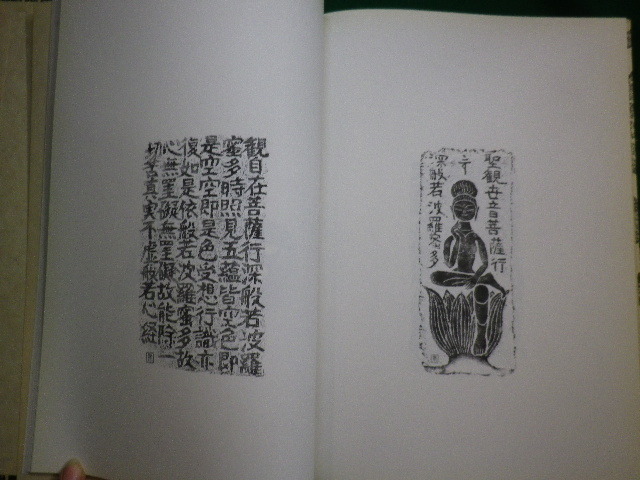 聖観世音菩薩行
深般若波羅蜜多
観自在菩薩行深般若波羅
蜜多時照見五蘊皆空色即
是空空即是色受想行識亦
復如是依般若波羅蜜多故
心無罣礙無罣礙故能除一
切苦真実不虚般若心経